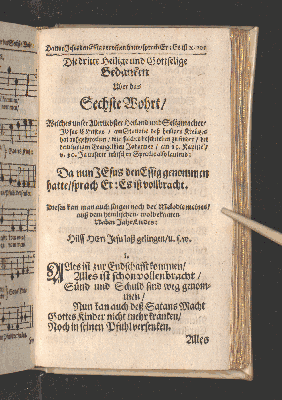 Da nun Jesus den Essig genommen hatte/sprach Er: Es ist
Die dritte Heilige und Gottselige
Gedanken
Uber das
Sechste Wohrt/
Welches unser Allerliebster Heiland und Seligmacher/
JEsus CHristus / am Stamme deß heiligen Kreutzes
hat außgesprochen / wie solches beschrieben zu finden / bei
dem heiligen Evangelisten Johannes / am 19. Kapittel/
v. 30. In unserm teutschen also lautend:
Da nun JEsus den Essig genommen
hatte/sprach Er: Es ist vollbracht.
Dieses kan man auch singen nach der Melodie meines/
auß dem himlischen wolbekanten
Neuen Jahrs Liedes:
Hilff HErr Jesu laß gelingen/u. s. w.
1.
ALles ist zur Endschafft kommen/
Alles ist schon vollendracht/
Sünd und Schuld sind weg genom-
men/
Nun kan auch deß Satans Macht
Gottes Kinder nicht mehr kranken/
Noch in seinen Pfuhl versenken.
Alles